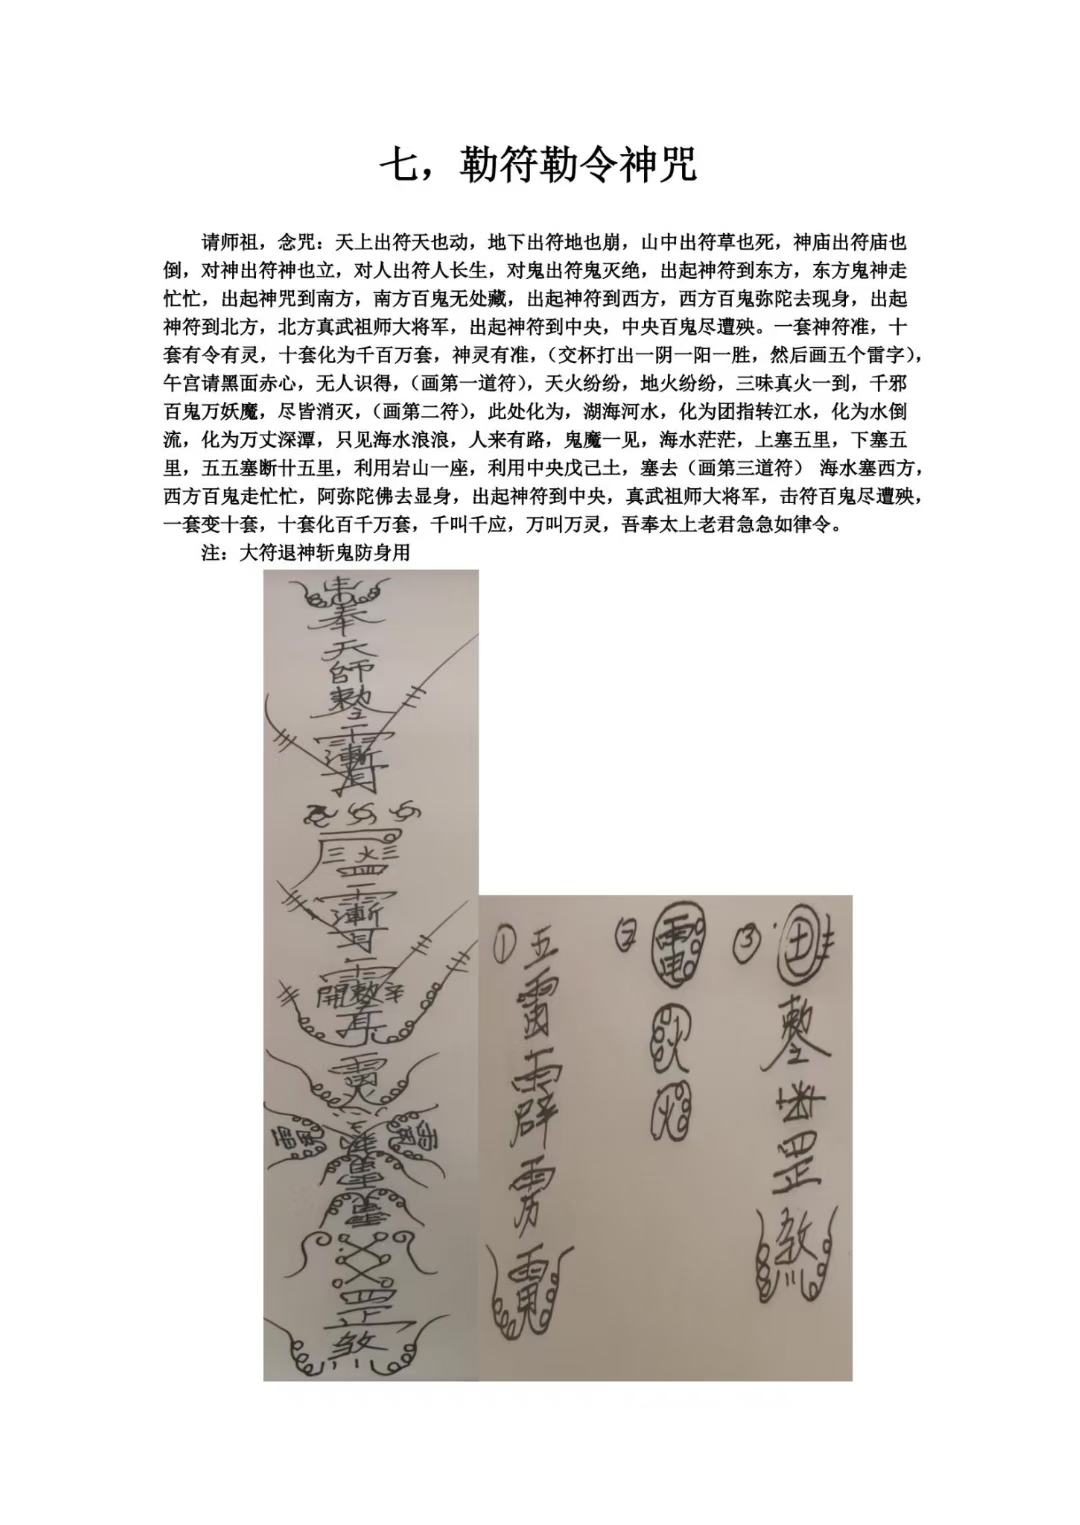 七，勒符勒令神咒
请师祖，念咒：天上出符天也动，地下出符地也崩，山中出符草也死，神庙出符庙也
倒，对神出符神也立，对人出符人长生，对鬼出符鬼灭绝，出起神符到东方，东方鬼神走
忙忙，出起神咒到南方，南方百鬼无处藏，出起神符到西方，西方百鬼弥陀去现身，出起
神符到北方，北方真武祖师大将军，出起神符到中央，中央百鬼尽遭殃。一套神符准，十
套有令有灵，十套化为千百万套，神灵有准，（交杯打出一阴一阳一胜，然后画五个雷字），
午宫请黑面赤心，无人识得，（画第一道符），天火纷纷，地火纷纷，三味真火一到，千邪
百鬼万妖魔，尽皆消灭，（画第二符），此处化为，湖海河水，化为团指转江水，化为水倒
流，化为万丈深潭，只见海水浪浪，人来有路，鬼魔一见，海水茫茫，上塞五里，下塞五
里，五五塞断廿五里，利用岩山一座，利用中央戊己土，塞去（画第三道符） 海水塞西方，
西方百鬼走忙忙，阿弥陀佛去显身，出起神符到中央，真武祖师大将军，击符百鬼尽遭殃，
一套变十套，十套化百千万套，千叫千应，万叫万灵，吾奉太上老君急急如律令。
注：大符退神斩鬼防身用
奉
天
師
勅
火
罡
煞
①
五
②
③
勅
罡
煞